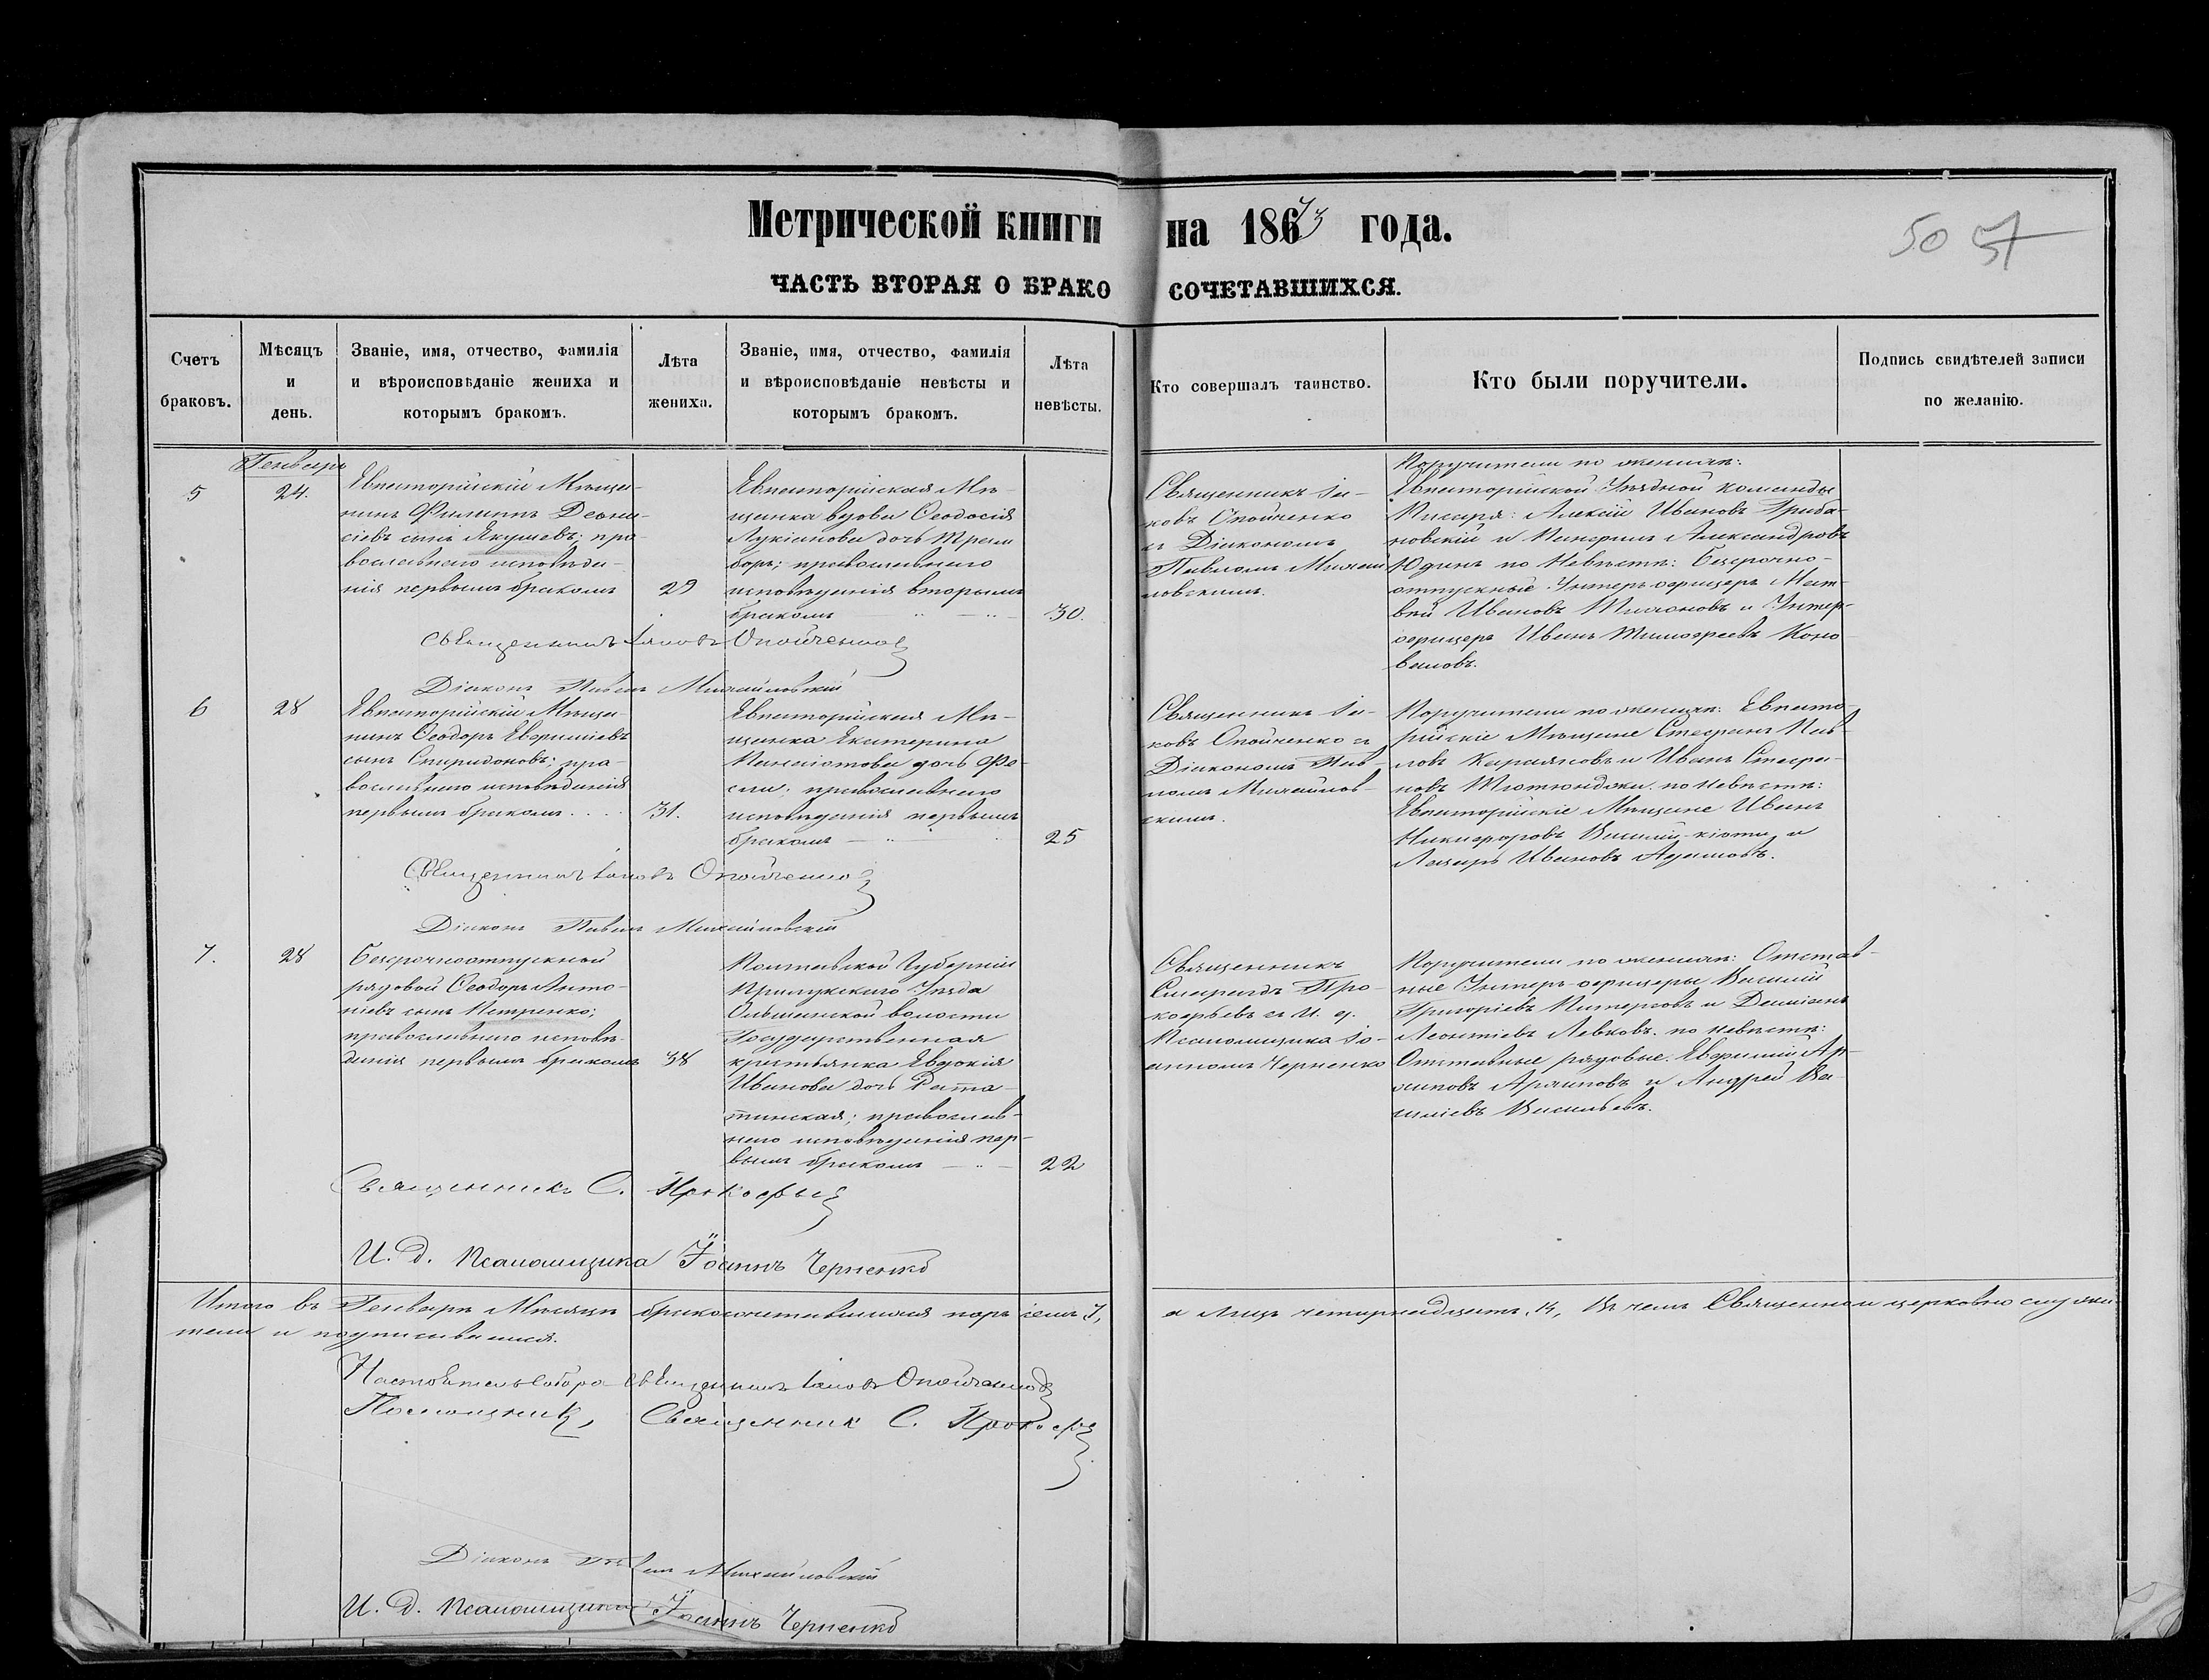 Метрической книги на 1873 года.
50 51
ЧАСТЬ ВТОРАЯ О БРАКОСОЧЕТАВШИХСЯ.
Счетъ браковъ.
Мѣсяцъ и день.
Званіе, имя, отчество, фамилія и вѣроисповѣданіе жениха и которымъ бракомъ.
Лѣта жениха.
Званіе, имя, отчество, фамилія и вѣроисповѣданіе невѣсты и которымъ бракомъ.
Лѣта невѣсты.
Кто совершалъ таинство.
Кто были поручители.
Подпись свидѣтелей записи по желанію.
Генварь
5
24.
Евпаторійскій Мѣща-
нинъ Филиппъ Деони-
сіевъ сынъ Якушевъ; пра-
вославнаго исповѣда-
нія первымъ бракомъ
29
Евпаторійская Мѣ-
щанка вдова Ѳеодосія
Лукіанова дочь
православнаго
исповѣданія вторымъ
бракомъ
30.
Священникъ Іа-
ковъ Опойченко
съ Діакономъ
Павломъ Михай-
ловскимъ.
Поручители по женихѣ:
Евпаторійской Уѣздной команды
Писаря: Алексій Ивановъ Гриба-
новскій и Александровъ
Юдинъ по Невѣстѣ: Безсрочно-
отпускные Унтеръ-офицеръ Мат-
вѣй Ивановъ и Унтеръ-
офицеръ Иванъ Тимофеевъ Коно-
валовъ.
Священникъ Іаковъ Опойченко
Діаконъ Павелъ Михайловскій
6
28
Евпаторійскій Мѣща-
нинъ Ѳеодоръ Евфиміевъ
сынъ Спиридоновъ; пра-
вославнаго исповѣданія
первымъ бракомъ....
31.
Евпаторійская Мѣ-
щанка Екатерина
Панаіотова дочь
православнаго
исповѣданія первымъ
бракомъ
25
Священникъ Іа-
ковъ Опойченко съ
Діакономъ Пав-
ломъ Михайлов-
скимъ.
Поручители по женихѣ: Евпато-
рійскіе Мѣщане Стефанъ Пав-
ловъ и Иванъ Стефа-
новъ Тютюнджи. по невѣстѣ:
Евпаторійскіе Мѣщане Иванъ
Никифоровъ и
Лазарь Ивановъ Адамовъ.
Священникъ Іаковъ Опойченко
Діаконъ Павелъ Михайловскій
7.
28
Безсрочноотпускной
рядовой Ѳеодоръ Анто-
ніевъ сынъ Петренко;
православнаго исповѣ-
данія первымъ бракомъ
38
Полтавской Губерніи
Прилукскаго Уѣзда
Ольшанской волости
Государственная
крестьянка Евдокія
Иванова дочь Рата-
тинская; православ-
наго исповѣданія пер-
вымъ бракомъ
22
Священникъ
Спиридъ Про-
кофьевъ съ И. д.
Псаломщика Іо-
анномъ Черненко
Поручители по женихѣ: Отстав-
ные Унтеръ-офицеры Василій
Григоріевъ и Даміанъ
Леонтіевъ Левковъ. по невѣстѣ:
Отставные рядовые Евфимій Ар-
хиповъ Архиповъ и Андрей Ва-
силіевъ Васильевъ.
Священникъ С. Прокофьев
И. Д. Псаломщика Іоаннъ Черненко
Итого въ Генварѣ Мѣсяцѣ бракосочетавшихся паръ семь 7, а лицъ четырнадцать, 14, Въ чемъ Священно и церковнослужи-
тели и подписываемся.
Настоятель Собора Священникъ Іаковъ Опойченко
Помощникъ, Священникъ С. Прокоф
Діаконъ Павелъ Михайловскій
И. Д. Псаломщика Іоаннъ Черненко